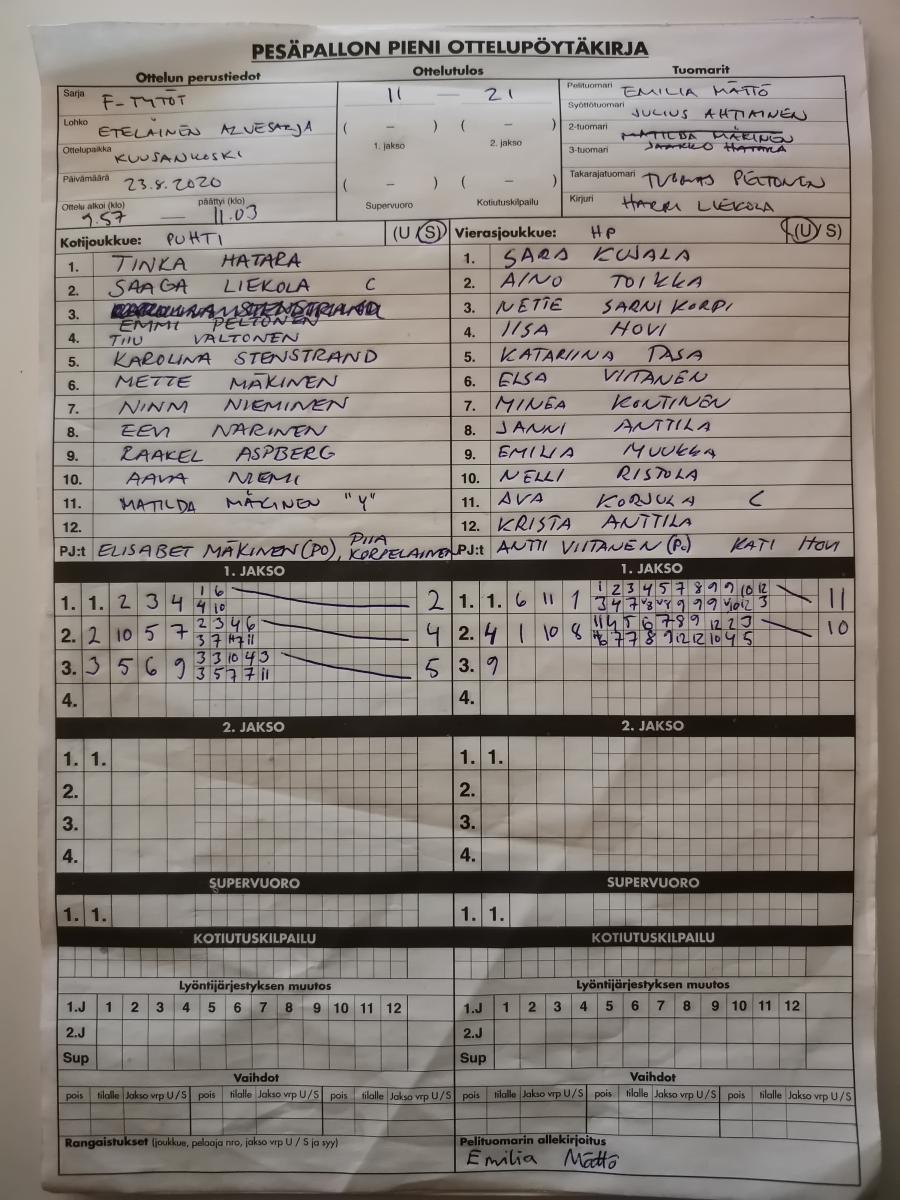 PESÄPALLON PIENI OTTELUPÖYTÄKIRJA
Ottelun perustiedot Ottelutulos Tuomarit
Sarja F-TYTÖT
Lohko ETELÄINEN ALUESARJA
Ottelupaikka KUUSANKOSKI
Päivämäärä 23.8.2020
Ottelu alkoi (klo) päättyi (klo)
9.57 — 11.03
11 — 21
( – ) ( – )
1. jakso 2. jakso
( – ) ( – )
Supervuoro Kotiutuskilpailu
Pelituomari EMILIA MÄTTÖ
Syöttötuomari JULIUS AHTIAINEN
2-tuomari MATILDA MÄKINEN
3-tuomari JAAKKO HATARA
Takarajatuomari TUOMAS PELTONEN
Kirjuri HARRI LIEKOLA
Kotijoukkue: PUHTI (U S)
1. TINKA HATARA
2. SAAGA LIEKOLA C
3. EMMI PELTONEN
4. TIIU VALTONEN
5. KAROLINA STENSTRAND
6. METTE MÄKINEN
7. NINNI NIEMINEN
8. EEVI NARINEN
9. RAAKEL ASPBERG
10. AAVA NIEMI
11. MATILDA MÄKINEN "Y"
12.
PJ:t ELISABET MÄKINEN (PO), PIIA KORPELAINEN
Vierasjoukkue: HP (U/S)
1. SARA KUJALA
2. AINO TOIKKA
3. NETTE SARNIKORPI
4. IISA HOVI
5. KATARIINA TASA
6. ELSA VIITANEN
7. MINEA KONTINEN
8. JANNI ANTTILA
9. EMILIA MUUKKA
10. NELLI RISTOLA
11. AVA KORJULA C
12. KRISTA ANTTILA
PJ:t ANTTI VIITANEN (Po) KATI HOVI
1. JAKSO
1. 1. 2 3 4 1 6 2
4 10
2. 2 10 5 7 2 3 4 6 4
3 7 11
3. 3 5 6 9 3 3 10 4 3 5
3 5 7 7 11
4.
1. JAKSO
1. 1. 6 11 1 1 2 3 4 5 7 8 9 9 10 12 11
3 4 7 9 9 9 12 3
2. 4 1 10 8 11 4 5 6 7 8 9 12 2 3 10
6 7 7 8 9 12 12 10 4 5
3. 9
4.
2. JAKSO 2. JAKSO
1. 1. 1. 1.
2. 2.
3. 3.
4. 4.
SUPERVUORO SUPERVUORO
1. 1. 1. 1.
KOTIUTUSKILPAILU KOTIUTUSKILPAILU
Lyöntijärjestyksen muutos Lyöntijärjestyksen muutos
1.J 1 2 3 4 5 6 7 8 9 10 11 12 1.J 1 2 3 4 5 6 7 8 9 10 11 12
2.J 2.J
Sup Sup
Vaihdot Vaihdot
pois tilalle Jakso vrp U / S pois tilalle Jakso vrp U / S pois tilalle Jakso vrp U / S pois tilalle Jakso vrp U / S pois tilalle Jakso vrp U / S pois tilalle Jakso vrp U / S
Rangaistukset (joukkue, pelaaja nro, jakso vrp U / S ja syy) Pelituomarin allekirjoitus
Emilia Mättö